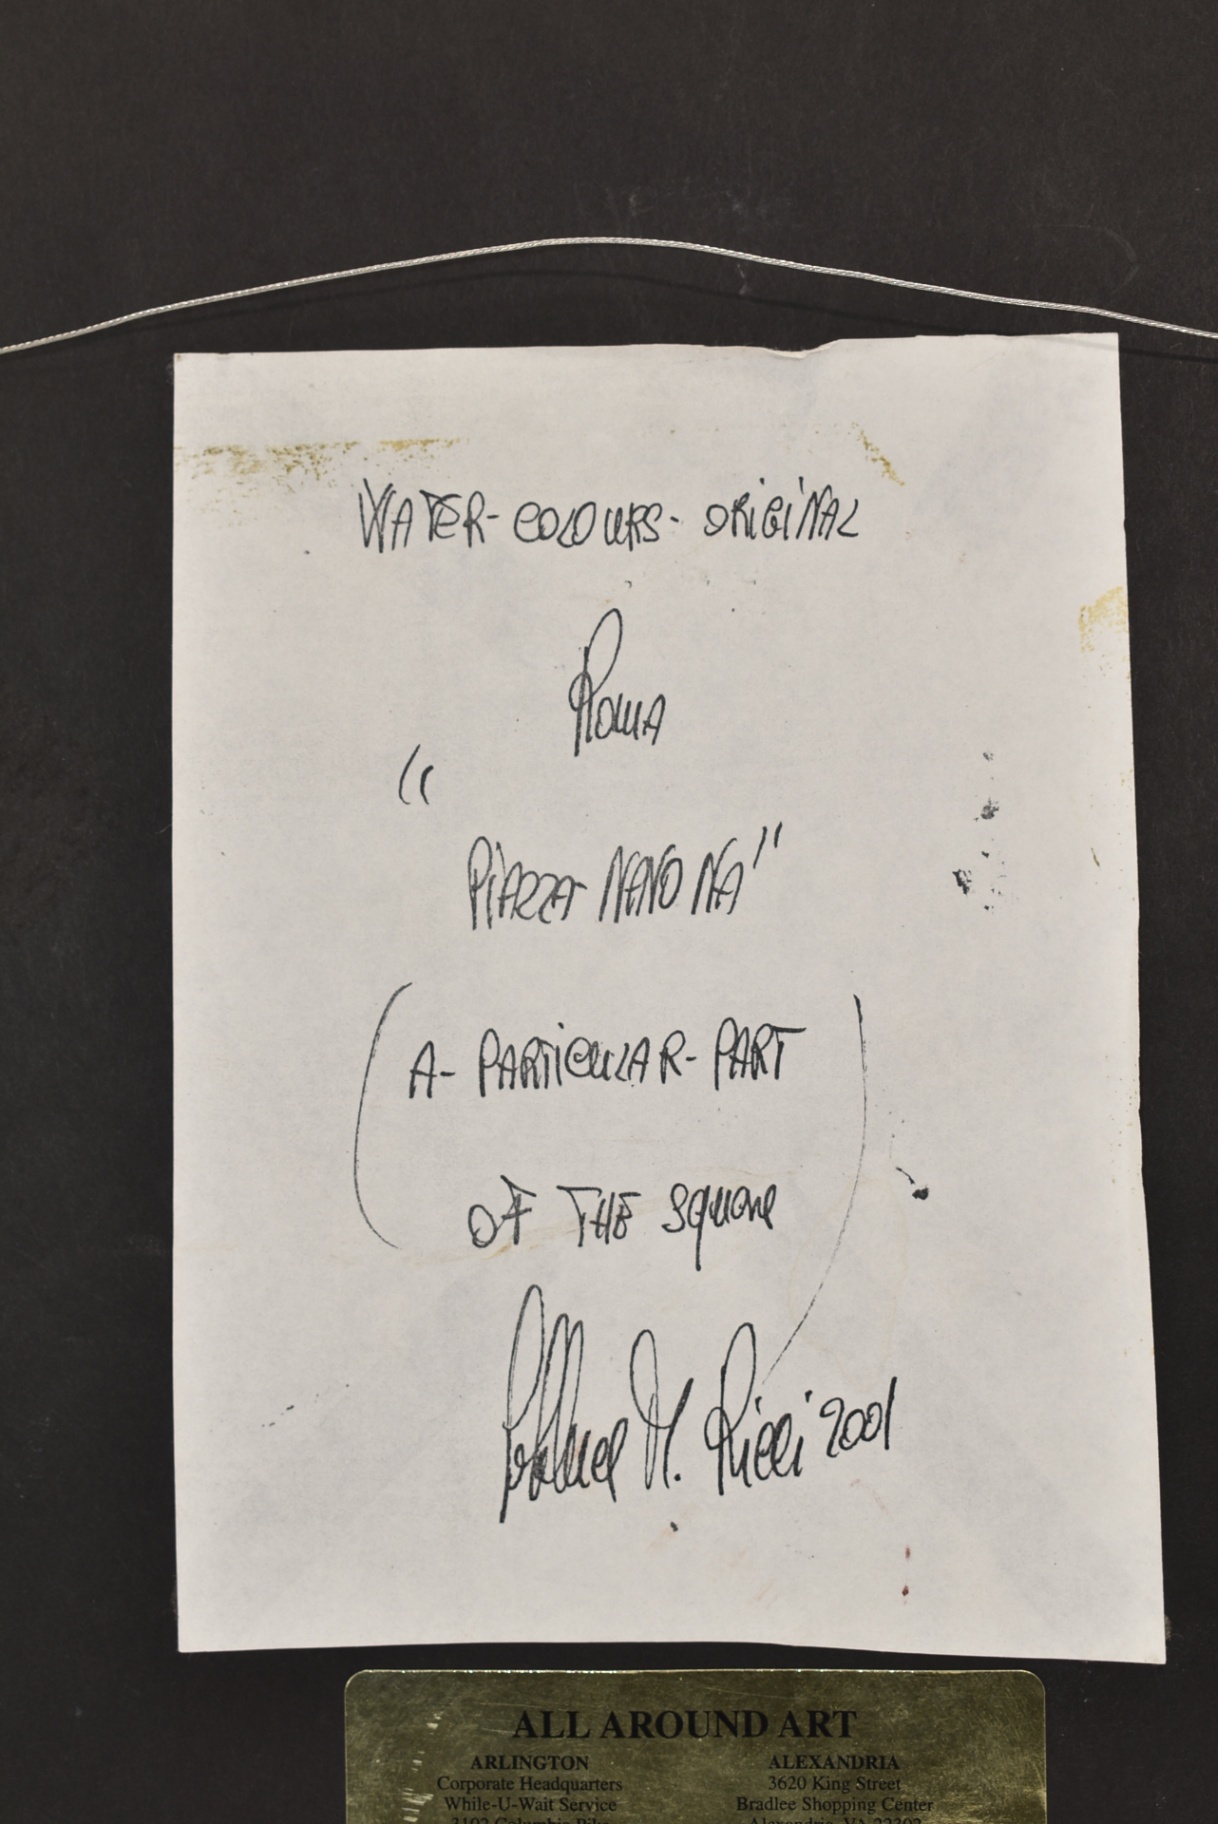 WATER-COLOURS-ORIGINAL
Roma
"
PIAZZA NAVONA"
(A-PARTICULAR-PART
OF THE square)
M. Ricci 2001
ALL AROUND ART
ARLINGTON
Corporate Headquarters
While-U-Wait Service
3102 Columbia Pike
ALEXANDRIA
3620 King Street
Bradlee Shopping Center
Alexandria, VA 22302